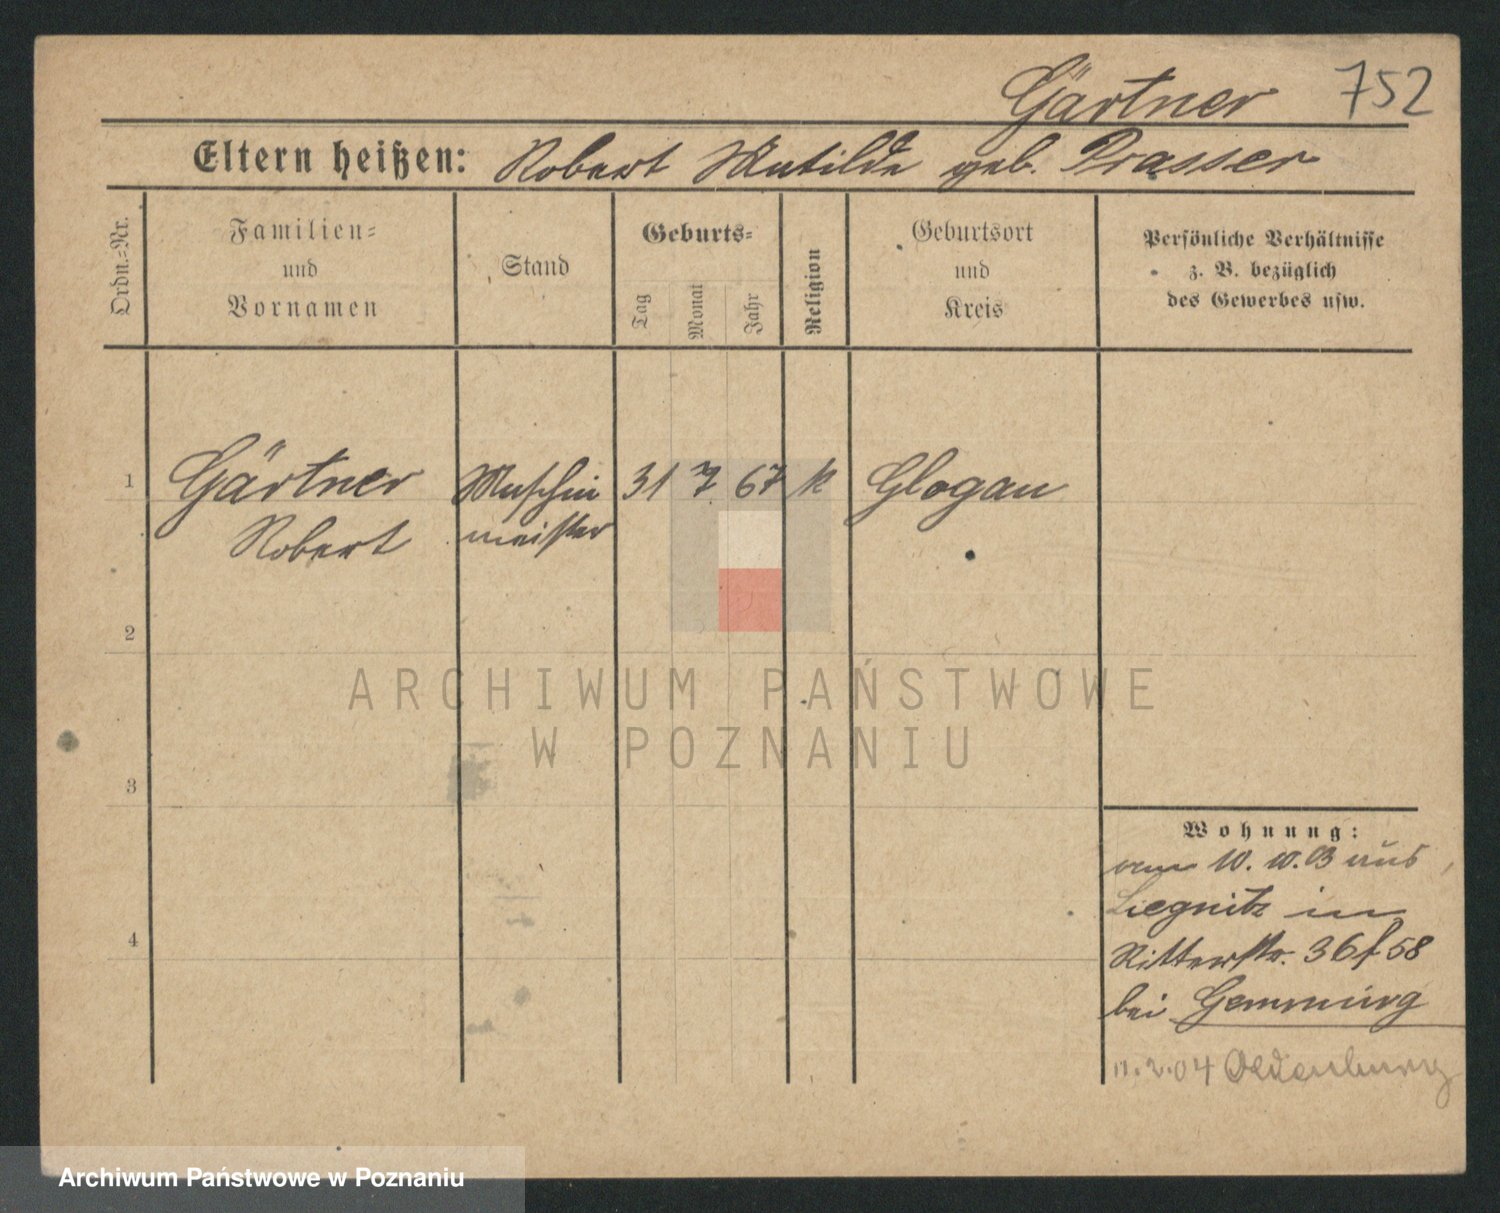 Gärtner 752
Eltern heißen: Robert Matilde geb. Prasser
Ordn.-Nr.
Familien-
und
Vornamen
Stand
Geburts-
Tag
Monat
Jahr
Religion
Geburtsort
und
Kreis
Persönliche Verhältnisse
z. B. bezüglich
des Gewerbes usw.
1 Gärtner Maschin 31 7 67 k Glogau
Robert meister
2
3
4
Wohnung:
vom 10. 10. 03 aus
Liegnitz in
Ritterstr. 36 f 58
bei
11.2.04 Oldenburg
ARCHIWUM PAŃSTWOWE
W POZNANIU
Archiwum Państwowe w Poznaniu